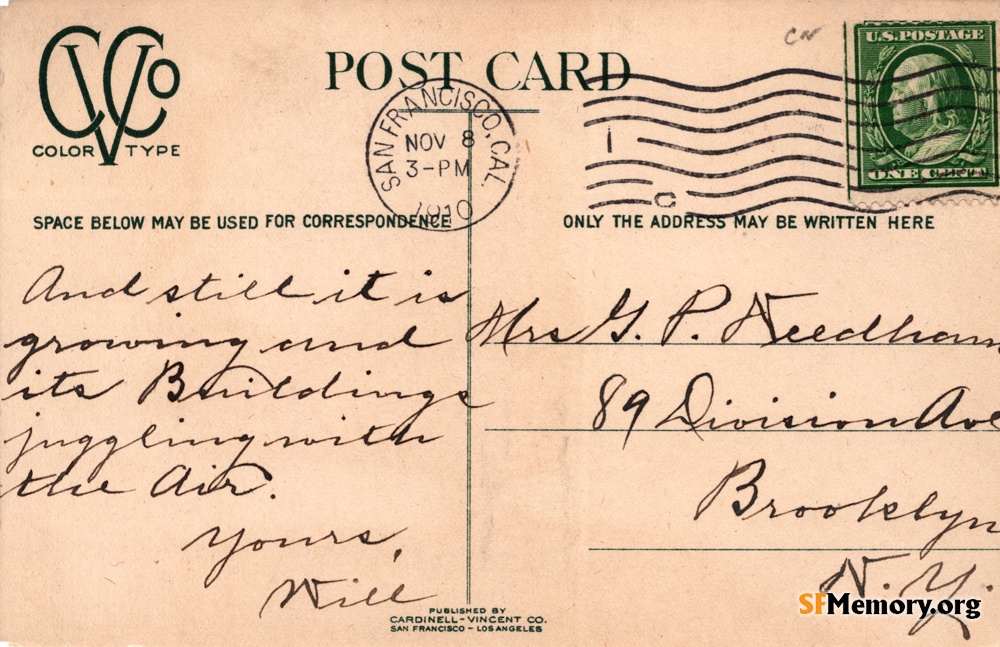 CVCo
COLOR TYPE
POST CARD
SAN FRANCISCO, CAL.
NOV 8
3-PM
1910
U.S. POSTAGE
ONE CENT
SPACE BELOW MAY BE USED FOR CORRESPONDENCE
ONLY THE ADDRESS MAY BE WRITTEN HERE
And still it is
growing and
its Buildings
juggling with
the Air.
Yours,
Will
Mrs G. P. Needham
89 Division Ave
Brooklyn
N. Y.
PUBLISHED BY
CARDINELL-VINCENT CO.
SAN FRANCISCO - LOS ANGELES
SFMemory.org